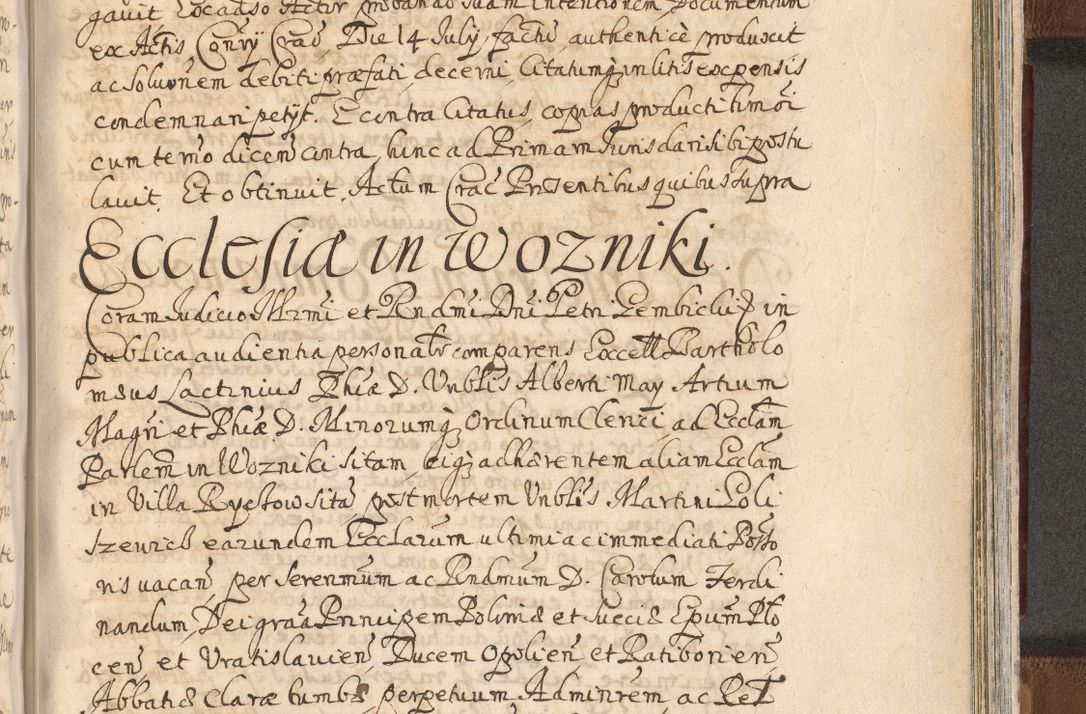 gavit Eoc adso Actor probando suam intentionem, Documentum
ex Actis, Consÿ Crac, Die 14 July, factũ, authenticè produxit
ac Solutionem debiti præfati, decerni, Citatumq in litis expensis
condemnari petÿt. E contra Citatus, copias producti himoi
cum termo dicen contra, hinc ad Primam Juris dari sibi postu
lavit. Et obtinuit. Actum Crac Presentibus quibus supra
Ecclesiæ in Wozniki.
Coram Judicio Illrmi et Rndmi Dni Petri Gembicki Ep in
publica audientia personalr comparens Excell Bartholo
meus Lactinius Phiæ D. Vnblis Alberti May Artium
Magri et Phiæ D. Minorumq Ordinum Clerici, ad Ecclam
Parlem in Wozniki sitam, eiq adhærentem aliam Ecclam
in Villa Ryczow sitã, post mortem Vnblis Martini Goli
szewicz earundem Ecclarum ultimi ac immediati Posso
ris vacan per Serenmum ac Rndmum D. Carolum Ferdi
nandum, Dei graã Principem Poloniæ et Sueciæ Epum Plo
cen et Vratislavien Ducem Opolien et Ratiborien
Abbatiæ Claræ tumbæ perpetuum Adminrem, ac Ret